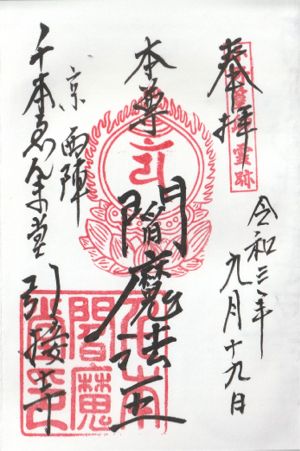 奉拝
令和三年
九月十九日
本尊
閻魔法王
京 西陣
千本ゑんま堂
引接寺